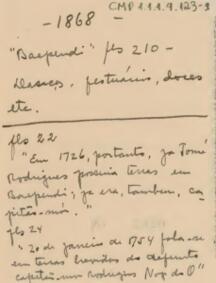 CMP 1.1.1.9.123-3
- 1868 -
"Baependi" fls 210 -
Danças, festuários, doces
etc.
fls 22
"Em 1726, portanto, ja Tomé
Rodrigues possuia terras em
Baependi; ja era, tambem, ca-
pitão-mór."
fls 24
"20 de janeiro de 1754 fala-se
em terras havidas do defunto
capitão-mór Rodrigues do Ó"